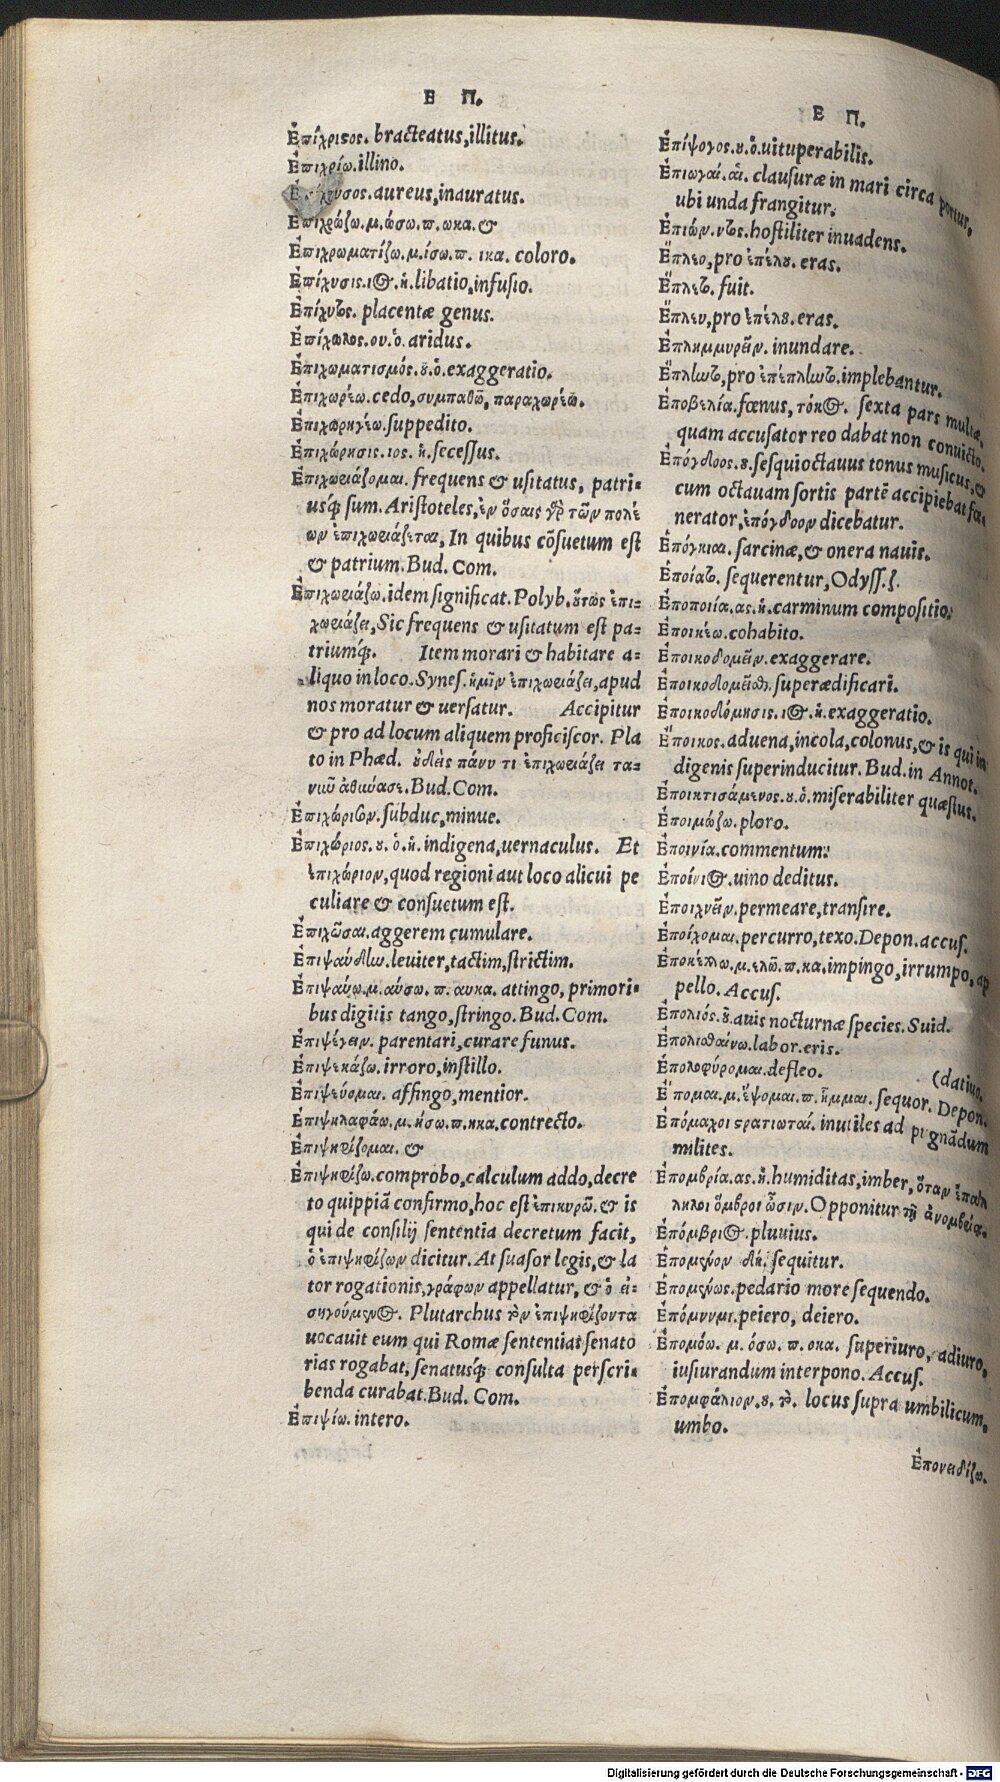 Ε Π.
Ἐπίχριςος. bracteatus, illitus.
Ἐπιχρίω. illino.
χρυσος. aureus, inauratus.
Ἐπιχρώζω. μ. ώσω. π. ωκα. &
Ἐπιχρωματίζω. μ. ίσω. π. ικα. coloro.
Ἐπίχυσις. ιος. ἡ. libatio, infusio.
Ἐπίχυτος. placentæ genus.
Ἐπίχωλος. ου. ὁ. aridus.
Ἐπιχωματισμός. ȣ. ὁ. exaggeratio.
Ἐπιχωρέω. cedo, συμπαθῶ, παραχωρέω.
Ἐπιχωρηγέω. suppedito.
Ἐπιχώρησις. ιος. ἡ. secessus.
Ἐπιχωριάζομαι. frequens & usitatus, patri-
usq́; sum. Aristoteles, ἐν ὅσαις γὰρ τῶν πολέ
ων ἐπιχωριάζεται, In quibus cōsuetum est
& patrium. Bud. Com.
Ἐπιχωριάζω. idem significat. Polyb. ȣ̓́τως ἐπι-
χωριάζει, Sic frequens & usitatum est pa-
triumq́;. Item morari & habitare a-
liquo in loco. Synes. ἡμῖν ἐπιχωριάζει, apud
nos moratur & uersatur. Accipitur
& pro ad locum aliquem proficiscor. Pla
to in Phæd. ȣ̓δεὶς πάνυ τι ἐπιχωριάζει τα-
νιῦ ἀθήναζε. Bud. Com.
Ἐπιχώρισον. subduc, minue.
Ἐπιχώριος. ȣ. ὁ. ἡ. indigena, uernaculus. Et
ἐπιχώριον, quod regioni aut loco alicui pe
culiare & consuetum est.
Ἐπιχῶσαι. aggerem cumulare.
Ἐπιψαύδην. leuiter, tactim, strictim.
Ἐπιψαύω. μ. αύσω. π. αυκα. attingo, primori-
bus digitis tango, stringo. Bud. Com.
Ἐπιψέγειν. parentari, curare funus.
Ἐπιψεκάζω. irroro, instillo.
Ἐπιψεύσμαι. affingo, mentior.
Ἐπιψηλαφάω. μ. ήσω. π. ηκα. contrecto.
Ἐπιψηφίζομαι. &
Ἐπιψηφίζω. comprobo, calculum addo, decre
to quippiā confirmo, hoc est ἐπικυρῶ. & is
qui de consilij sententia decretum facit,
ὁ ἐπιψηφίζων dicitur. At suasor legis, & la
tor rogationis, γράφων appellatur, & ὁ εἰ-
σηγούμενος. Plutarchus τὸν ἐπιψηφίζοντα
uocauit eum qui Romæ sententias senato
rias rogabat, senatusq́; consulta perscri-
benda curabat. Bud. Com.
Ἐπιψίω. intero.
Ε Π.
Ἐπίψογος. ȣ. ὁ. uituperabilis.
Ἐπιωγαί. αἱ. clausuræ in mari circa portus,
ubi unda frangitur.
Ἐπιών. ντος. hostiliter inuadens.
Ἔπλεο, pro ἐπέλȣ. eras.
Ἔπλετο. fuit.
Ἔπλευ, pro ἐπέλȣ. eras.
Ἐπλημμυρεῖν. inundare.
Ἔπληντο, pro ἐπέπληντο. implebantur.
Ἐποβελία. fœnus, τόκος. sexta pars multæ,
quam accusator reo dabat non conuicto.
Ἐπόγδοος. ȣ. sesquioctauus tonus musicus, &
cum octauam sortis partē accipiebat fœ-
nerator, ἐπόγδοον dicebatur.
Ἐπόγκιαι. sarcinæ, & onera nauis.
Ἐποίατο. sequerentur, Odyss. ζ.
Ἐποποιία. ας. ἡ. carminum compositio.
Ἐποικέω. cohabito.
Ἐποικοδομεῖν. exaggerare.
Ἐποικοδομεῖσθαι. superædificari.
Ἐποικοδόμησις. ιος. ἡ. exaggeratio.
Ἔποικος. aduena, incola, colonus, & is qui in
digenis superinducitur. Bud. in Annot.
Ἐποικτισάμενος. ȣ. ὁ. miserabiliter quæstus.
Ἐποιμώζω. ploro.
Ἐποινία. commentum.
Ἐποίνιος. uino deditus.
Ἐποιχνεῖν. permeare, transire.
Ἐποίχομαι. percurro, texo. Depon. accus.
Ἐποκέλλω. μ. ελῶ. π. κα. impingo, irrumpo, ap
pello. Accus.
Ἐπολιός. ȣ̃. auis nocturnæ species. Suid.
Ἐπολισθαίνω. labor. eris.
Ἐπολοφύρομαι. defleo.
(datiuo.
Ἕπομαι. μ. ἕψομαι. π. ἧμμαι. sequor. Depon.
Ἐπόμαχοι ςρατιωταί. inutiles ad pugnādum
milites.
Ἐπομβρία. ας. ἡ. humiditas, imber, ὅταν ἐπαλ
ληλοι ὄμβροι ὦσιν. Opponitur τῇ ἀνομβρίᾳ.
Ἐπόμβριος. pluuius.
Ἑπομένον δή. sequitur.
Ἑπομένως. pedario more sequendo.
Ἐπόμνυμι. peiero, deiero.
Ἐπομόω. μ. όσω. π. οκα. superiuro, adiuro,
iusiurandum interpono. Accus.
Ἐπομφάλιον. ȣ. τὸ. locus supra umbilicum,
umbo.
Ἐπονειδίζω.
Digitalisierung gefördert durch die Deutsche Forschungsgemeinschaft - DFG